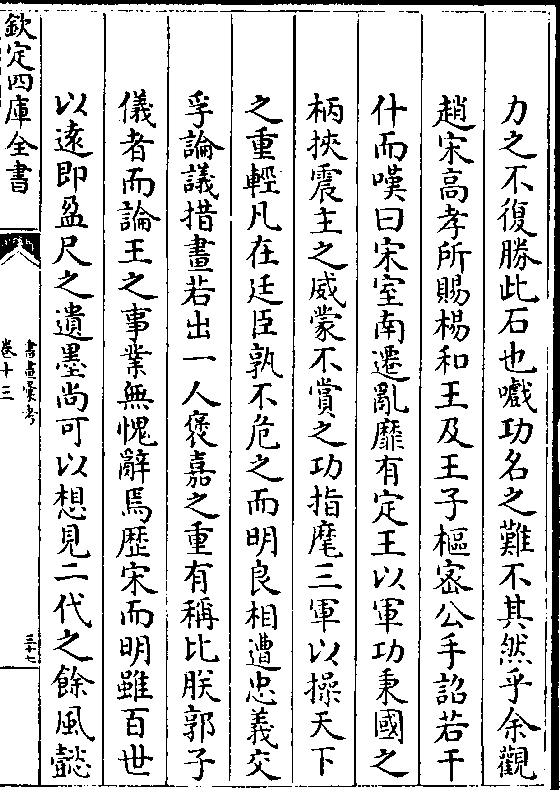 力之不復勝此石也嚱功名之難不其然乎余觀
趙宋高孝所賜楊和王及王子樞宻公手詔若干
什而嘆曰宋室南遷亂靡有定王以軍功秉國之
柄挾震主之威蒙不賞之功指麾三軍以操天下
之重輕凡在廷臣孰不危之而明良相遭忠義交
孚論議措畫若出一人褒嘉之重有稱比朕郭子
儀者而論王之事業無愧辭焉歴宋而明雖百世
以逺即盈尺之遺墨尚可以想見二代之餘風懿
欽定四庫全書
書畫彚考
卷十三
三十七